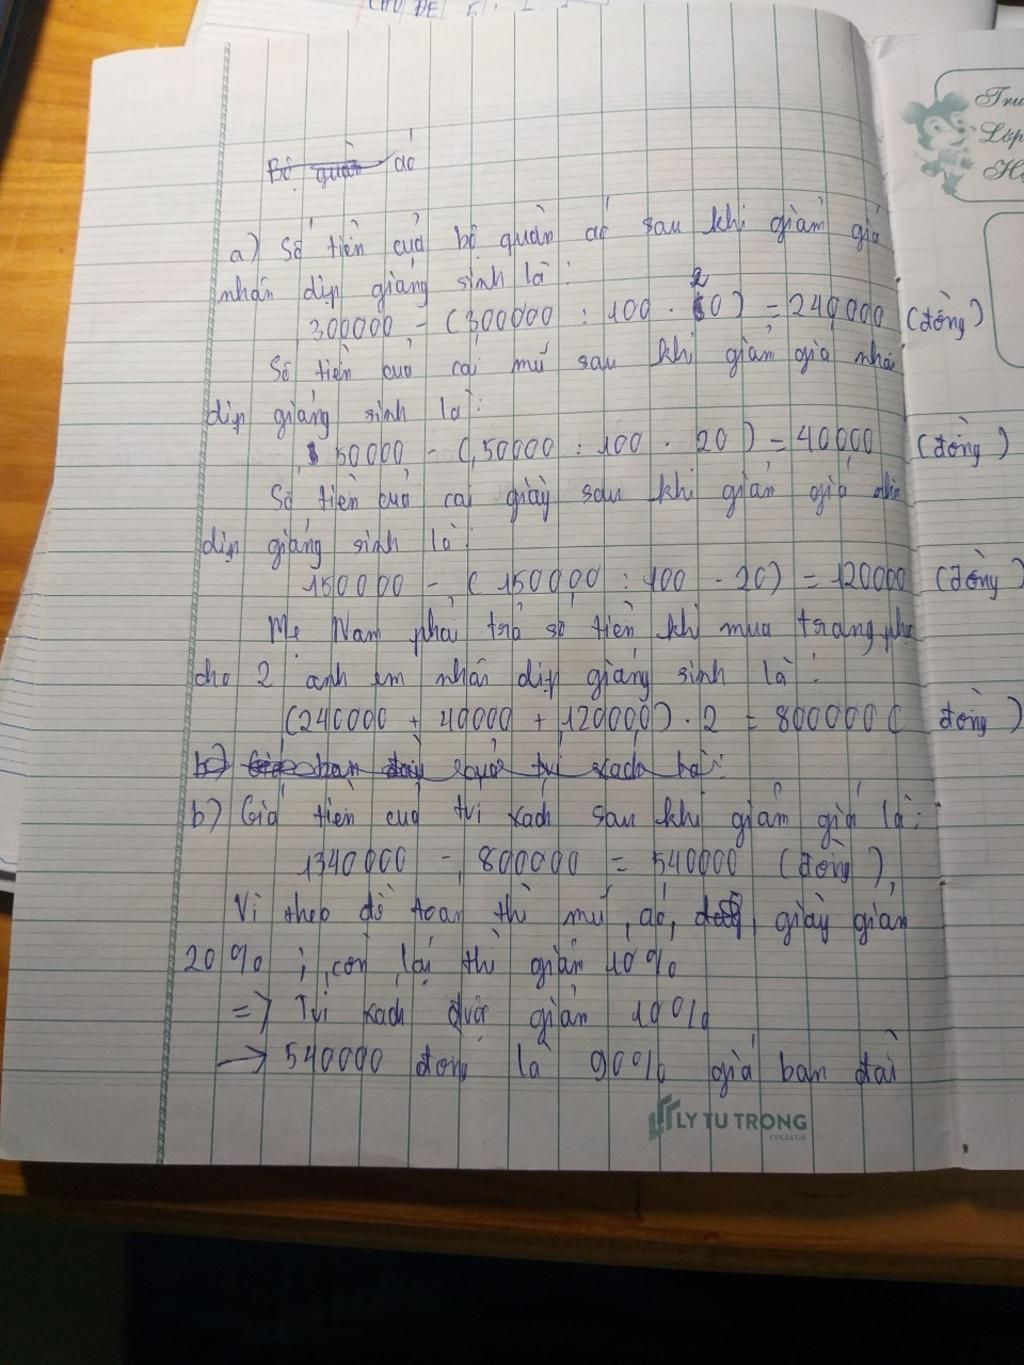 CHỦ ĐỀ
Bộ quần áo
Trư
Lớp
Họ
a) Số tiền của bộ quần áo sau khi giảm giá
nhân dịp giáng sinh là:
300000 - (300000 : 100 . 20) = 240000 (đồng)
Số tiền của cái mũ sau khi giảm giá nhân
dịp giáng sinh là:
50000 - (50000 : 100 . 20) = 40000 (đồng)
Số tiền của cái giày sau khi giảm giá nhân
dịp giáng sinh là:
150000 - (150000 : 100 . 20) = 120000 (đồng)
Mẹ Nam phải trả số tiền khi mua trang phục
cho 2 anh em nhân dịp giáng sinh là:
(240000 + 40000 + 120000) . 2 = 800000 (đồng)
b) ban đầu của túi xách là:
b) Giá tiền của túi xách sau khi giảm giá là:
1340000 - 800000 = 540000 (đồng),
Vì theo đề toán thì mũ, áo, giày giảm
20% ; còn lại thì giảm 10%
=> Túi xách được giảm 10%
→ 540000 đồng là 90% giá ban đầu
LY TU TRONG
COLLEGE